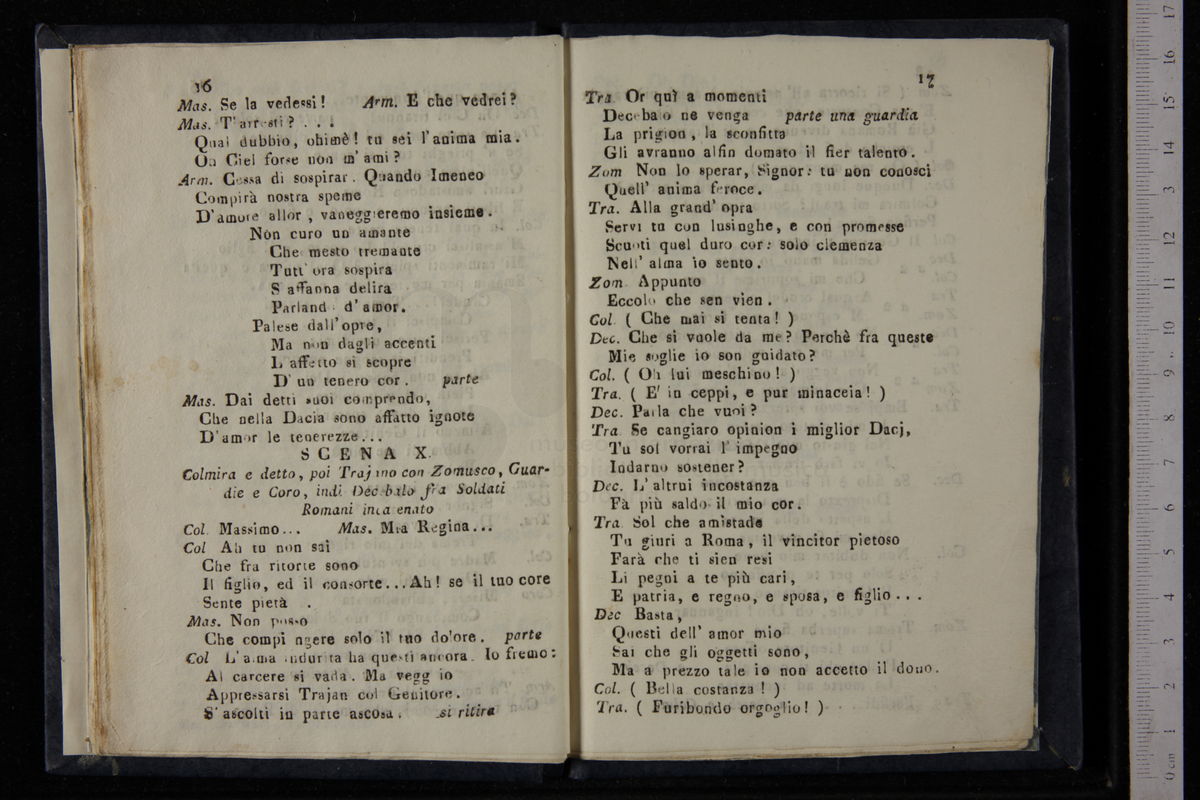 16
Mas. Se la vedessi! Arm. E che vedrei?
Mas. T'arresti? . . .
Qual dubbio, ohimè! tu sei l'anima mia.
Oh Ciel forse non m'ami?
Arm. Cessa di sospirar. Quando Imeneo
Compirà nostra speme
D'amore allor, vaneggieremo insieme.
Non curo un amante
Che mesto tremante
Tutt'ora sospira
S'affanna delira
Parland d'amor.
Palese dall'opre,
Ma non dagli accenti
L'affetto si scopre
D'un tenero cor. parte
Mas. Dai detti suoi comprendo,
Che nella Dacia sono affatto ignote
D'amor le tenerezze...
SCENA X.
Colmira e detto, poi Trajano con Zomusco, Guar-
die e Coro, indi Decebalo fra Soldati
Romani incatenato
Col. Massimo... Mas. Mia Regina...
Col Ah tu non sai
Che fra ritorte sono
Il figlio, ed il consorte...Ah! se il tuo core
Sente pietà .
Mas. Non posso
Che compiangere solo il tuo dolore. parte
Col L'alma indurita ha questi ancora. Io fremo:
Al carcere si vada. Ma vegg io
Appressarsi Trajan col Genitore.
S'ascolti in parte ascosa. si ritira
17
Tra Or quì a momenti
Decebalo ne venga parte una guardia
La prigion, la sconfitta
Gli avranno alfin domato il fier talento.
Zom Non lo sperar, Signor: tu non conosci
Quell' anima feroce.
Tra. Alla grand' opra
Servi tu con lusinghe, e con promesse
Scuoti quel duro cor: solo clemenza
Nell' alma io sento.
Zom. Appunto
Eccolo che sen vien.
Col. ( Che mai si tenta! )
Dec. Che si vuole da me? Perchè fra queste
Mie soglie io son guidato?
Col. ( Oh lui meschino! )
Tra. ( E' in ceppi, e pur minaceia! )
Dec. Parla che vuoi?
Tra Se cangiaro opinion i miglior Dacj,
Tu sol vorrai l' impegno
Indarno sostener?
Dec. L' altrui incostanza
Fà più saldo il mio cor.
Tra. Sol che amistade
Tu giuri a Roma, il vincitor pietoso
Farà che ti sien resi
Li pegni a te più cari,
E patria, e regno, e sposa, e figlio...
Dec Basta,
Questi dell' amor mio
Sai che gli oggetti sono,
Ma a prezzo tale io non accetto il dono.
Col. ( Bella costanza! )
Tra. ( Furibondo orgoglio! )